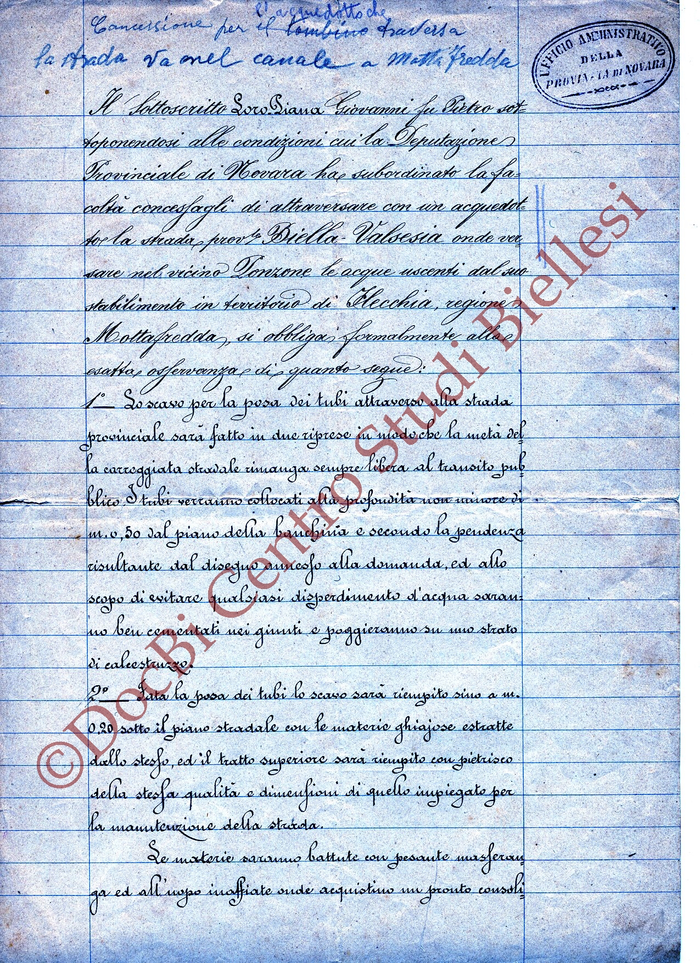 l'acquedotto che
Concessione per il tombino traversa
la strada va nel canale a Motta fredda
UFFICIO AMMINISTRATIVO
DELLA
PROVINCIA DI NOVARA
Il Sottoscritto Loro Piana Giovanni fu Pietro sot-
toponendosi alle condizioni cui la Deputazione
Provinciale di Novara ha subordinato la fa-
coltà concessagli di attraversare con un acquedot-
to la strada prov.le Biella-Valsesia onde ver-
sare nel vicino Ponzone le acque uscenti dal suo
stabilimento in territorio di Flecchia, regione
Mottafredda, si obbliga formalmente alla
esatta osservanza di quanto segue:
1° Lo scavo per la posa dei tubi attraverso alla strada
provinciale sarà fatto in due riprese in modo che la metà del-
la carreggiata stradale rimanga sempre libera al transito pub-
blico. I tubi verranno collocati alla profondità non minore di
m. 0,50 dal piano della banchina e secondo la pendenza
risultante dal disegno annesso alla domanda, ed allo
scopo di evitare qualsiasi disperdimento d'acqua saran-
no ben cementati nei giunti e poggieranno su uno strato
di calcestruzzo.
2° Fata la posa dei tubi lo scavo sarà riempito sino a m.
0,20 sotto il piano stradale con le materie ghiajose estratte
dallo stesso, ed il tratto superiore sarà riempito con pietrisco
della stessa qualità e dimensioni di quello impiegato per
la manutenzione della strada.
Le materie saranno battute con pesante masseran-
ga ed all'uopo inaffiate onde acquistino un pronto consoli-
©DocBi Centro Studi Biellesi